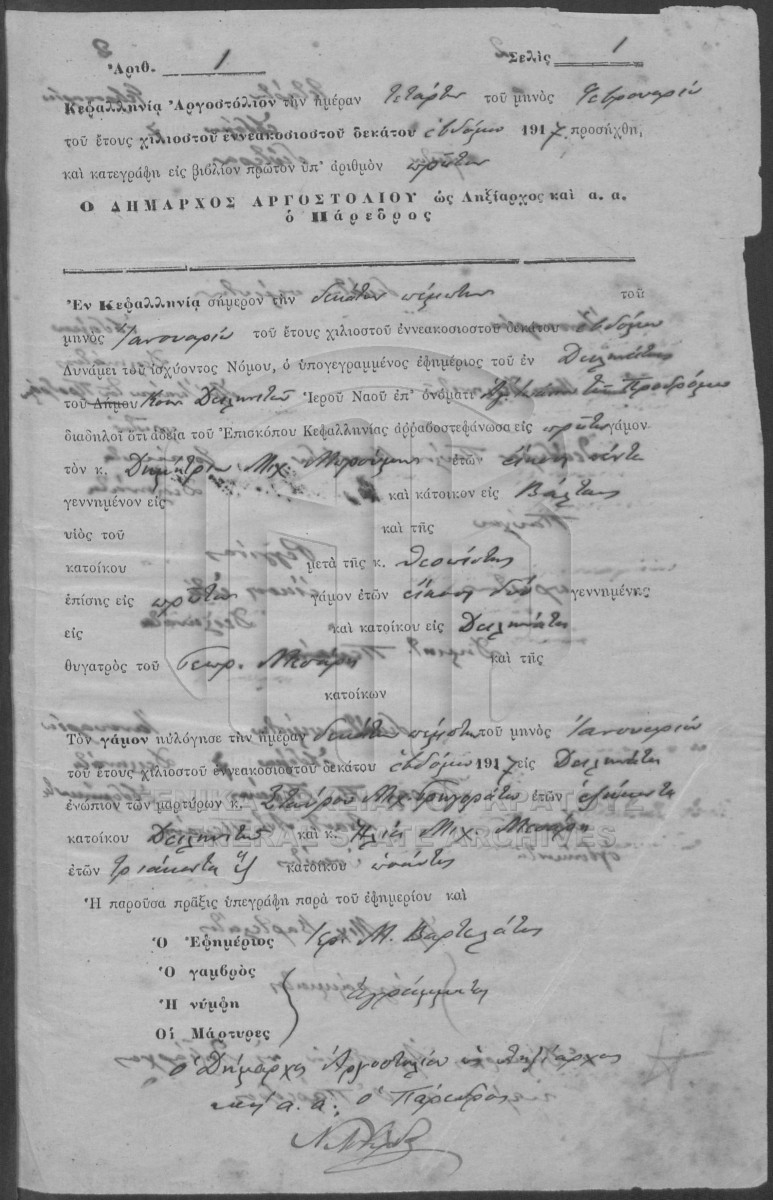 Ἀριθ. 1 Σελὶς 1
Κεφαλληνία Ἀργοστόλιον τὴν ἡμέραν τετάρτην τοῦ μηνὸς Φεβρουαρίου
τοῦ ἔτους χιλιοστοῦ ἐννεακοσιοστοῦ δεκάτου ἑβδόμου 1917 προσήχθη,
καὶ κατεγράφη εἰς βιβλίον πρῶτον ὑπ' ἀριθμὸν πρῶτον
Ο ΔΗΜΑΡΧΟΣ ΑΡΓΟΣΤΟΛΙΟΥ ὡς Ληξίαρχος καὶ α. α.
ὁ Πάρεδρος
Ἐν Κεφαλληνίᾳ σήμερον τὴν δεκάτην πέμπτην τοῦ
μηνὸς Ἰανουαρίου τοῦ ἔτους χιλιοστοῦ ἐννεακοσιοστοῦ δεκάτου ἑβδόμου
Δυνάμει τοῦ ἰσχύοντος Νόμου, ὁ ὑπογεγραμμένος ἐφημέριος τοῦ ἐν Δειλινάτα
τοῦ Δήμου Κοιν Δειλινάτων Ἱεροῦ Ναοῦ ἐπ' ὀνόματι Ἁγ. Ἰωάννου τοῦ Προδρόμου
διαδηλοῖ ὅτι ἀδείᾳ τοῦ Ἐπισκόπου Κεφαλληνίας ἀρραβοστεφάνωσα εἰς πρῶτον γάμον
τὸν κ. Δημήτριον Μιχ. ἐτῶν εἴκοσι πέντε
γεννημένον εἰς καὶ κάτοικον εἰς
υἱὸς τοῦ καὶ τῆς
κατοίκου μετὰ τῆς κ. Θεοπίστης
ἐπίσης εἰς πρῶτον γάμον ἐτῶν εἴκοσι δύο γεννημένης
εἰς καὶ κατοίκου εἰς Δειλινάτα
θυγατρὸς τοῦ Γεωρ. Μεσάρη καὶ τῆς
κατοίκων
Τὸν γάμον ηὐλόγησε τὴν ἡμέραν δεκάτην πέμπτην τοῦ μηνὸς Ἰανουαρίου
τοῦ ἔτους χιλιοστοῦ ἐννεακοσιοστοῦ δεκάτου ἑβδόμου 1917 εἰς Δειλινάτα
ἐνώπιον τῶν μαρτύρων κ. Σταύρου Μιχ. Γρηγοράτου ἐτῶν ἑξήκοντα
κατοίκου Δειλινάτων καὶ κ. Ἠλία Μιχ. Μεσάρη
ἐτῶν τριάκοντα ἓξ κατοίκου
Ἡ παροῦσα πρᾶξις ὑπεγράφη παρὰ τοῦ ἐφημερίου καὶ
Ὁ Ἐφημέριος Ἱερ. Μ. Βαρτελάτος
Ὁ γαμβρὸς
Ἡ νύμφη Ἀγράμματοι
Οἱ Μάρτυρες
ὁ Δήμαρχος Ἀργοστολίου ὡς Ληξίαρχος
καὶ α. α. ὁ Πάρεδρος
ΓΕΝΙΚΑ ΑΡΧΕΙΑ ΤΟΥ ΚΡΑΤΟΥΣ
GENERAL STATE ARCHIVES